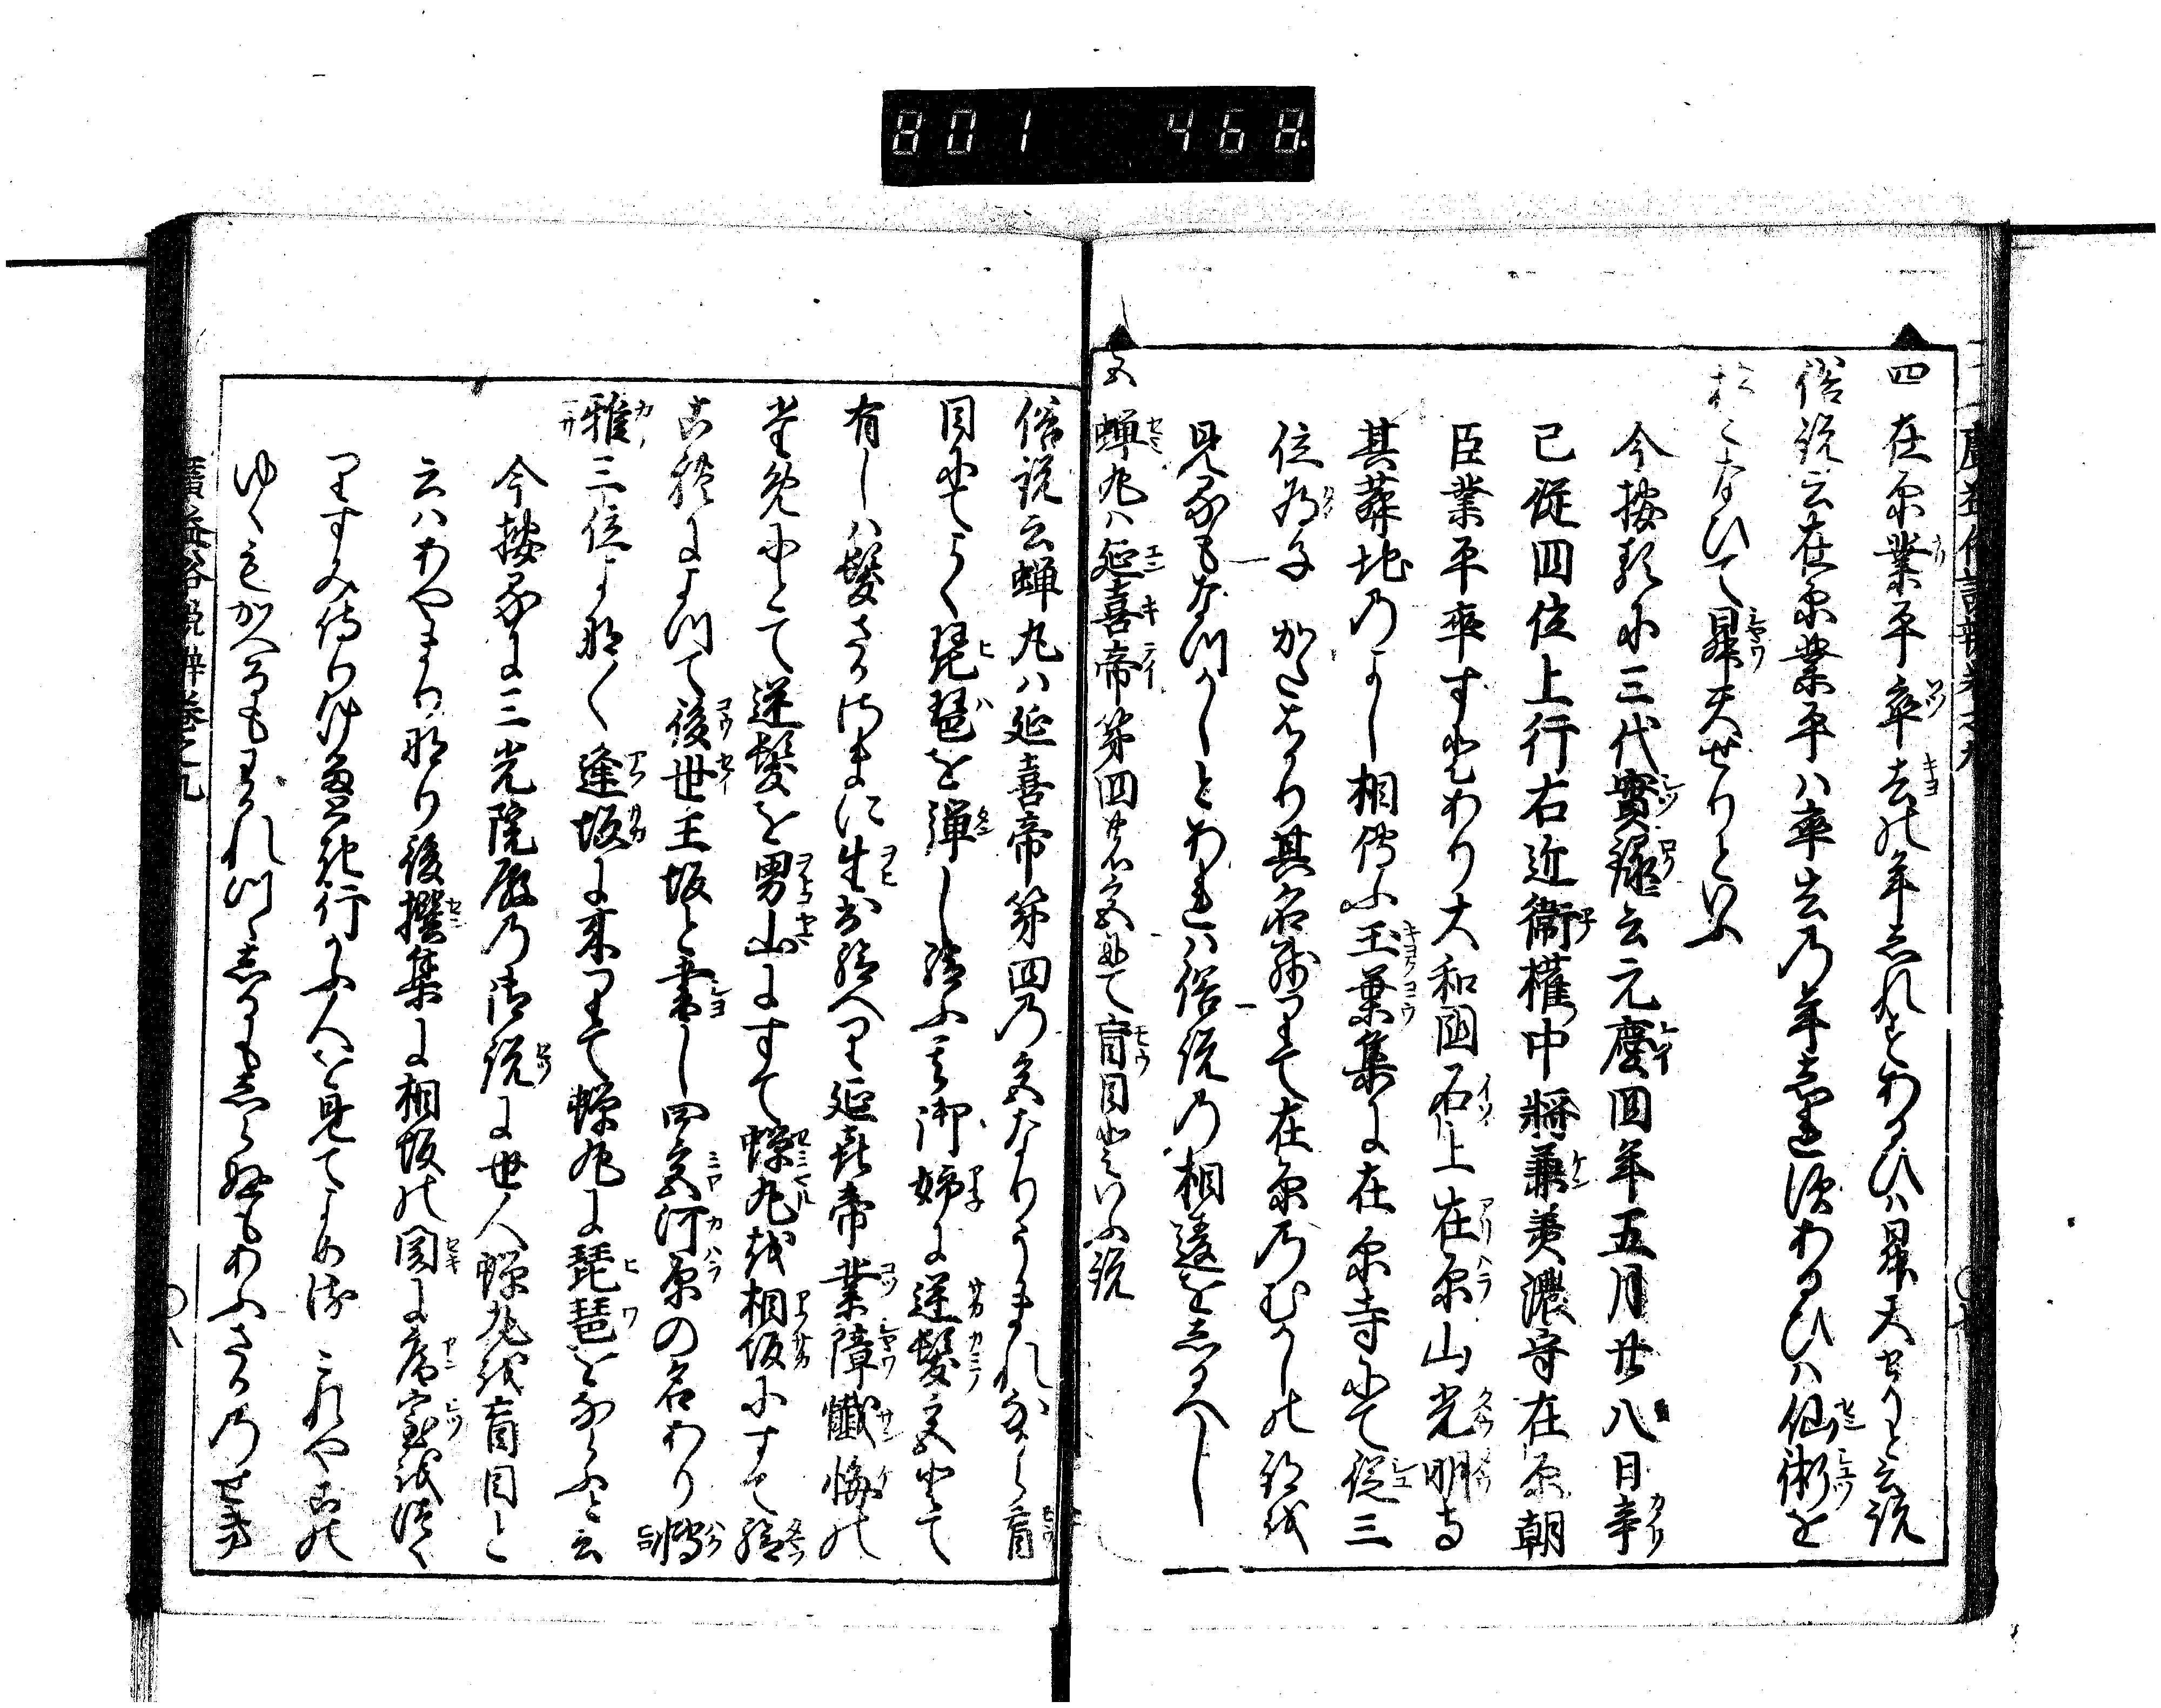 801 468
四 在原業平卒去の年しれずあるひハ昇天せりと云説
俗説云在原業平ハ卒去乃年しれ須あるひハ仙術を
おこなひて昇天せりといふ
今按るに三代實録云元慶四年五月廿八日辛
巳従四位上行右近衞權中將兼美濃守在原朝
臣業平卒すとあり大和國石上在原山光明寺
其葬地のよし相傳ふ玉葉集に在原寺にて従三
位為子 かたはかり其名残とて在原乃むかしの跡を
見るもなつかしとあれハ俗説乃相違をしるへし
五 蝉丸ハ延喜帝第四皇子の宮にて盲目といふ説
俗説云蝉丸ハ延喜帝第四乃宮なりうまれながら盲
目にてよく琵琶を弾し給ふ又御姉に逆髪宮とて
有しハ髪さかさまに生出給へり延喜帝業障懺悔の
ためにとて逆髪を男山にすて蝉丸を相坂にすて給
ふ故によつて後世王坂と書し四宮河原の名あり博
雅三位よなよな逢坂に来りて蝉丸に琵琶をならふと云
今按るに三光院殿乃御説に世人蝉丸を盲目と
云ハあやまり也後撰集に相坂の関に庵室を造く
りてすみ侍りけるに行かふ人を見てよめる これやこの
ゆくもかへるもわかれつゝしるもしらぬもあふさかの関
廣益俗説辨巻之九